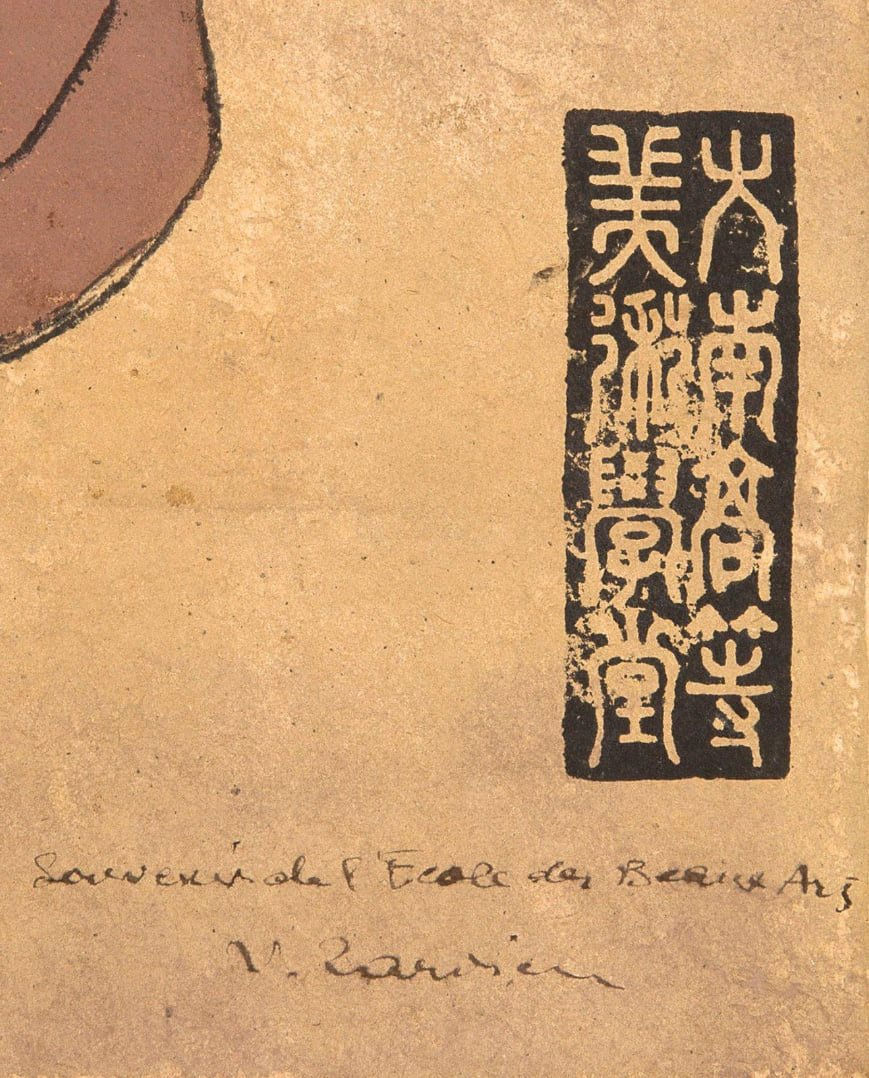 大南高等
美術學堂
Souvenir de l'Ecole des Beaux Arts
V. Tardieu